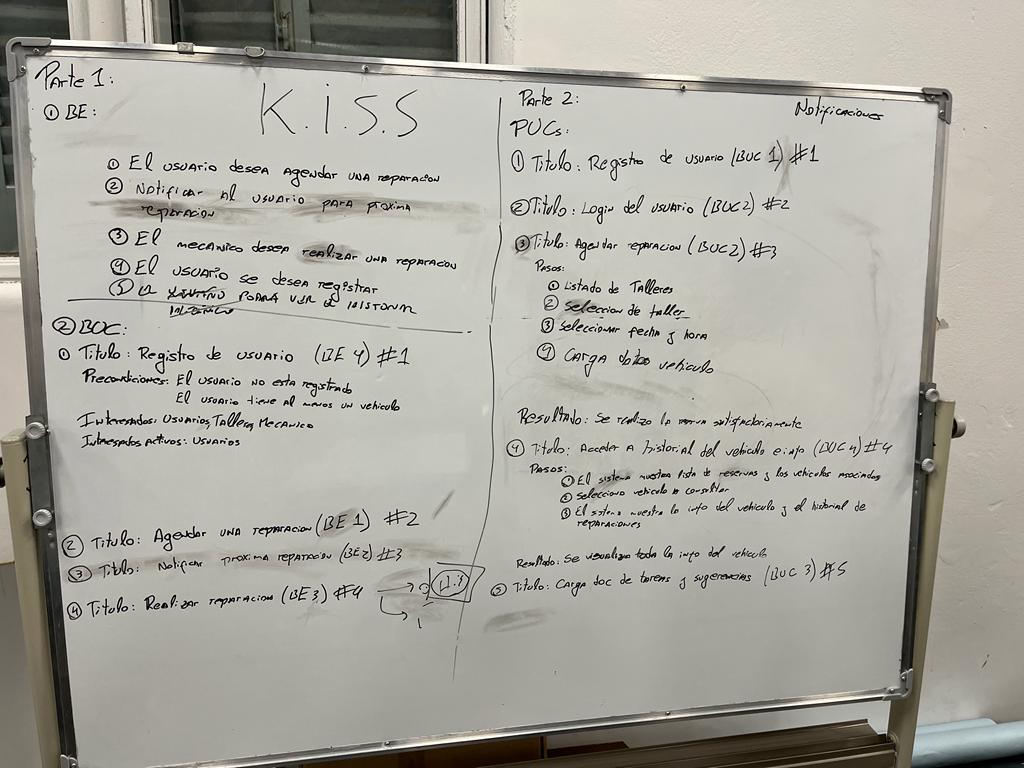 Parte 1:
K.I.S.S
① BE:
① El usuario desea agendar una reparacion
② Notificar al usuario para proxima
reparacion
③ El mecanico desea realizar una reparacion
④ El usuario se desea registrar
⑤ podrá ver
② BUC:
① Titulo: Registro de usuario (BE 4) #1
Precondiciones: El usuario no esta registrado
El usuario tiene al menos un vehiculo
Interesados: Usuarios, Talleres, Mecanico
Interesados activos: Usuarios
② Titulo: Agendar una reparacion (BE 1) #2
③ Titulo: Notificar proxima reparacion (BE2) #3
④ Titulo: Realizar reparacion (BE 3) #4
Parte 2:
Notificaciones
PUCs:
① Titulo: Registro de usuario (BUC 1) #1
② Titulo: Login del usuario (BUC2) #2
③ Titulo: Agendar reparacion (BUC2) #3
Pasos:
① Listado de Talleres
② Seleccion de taller
③ Seleccionar fecha y hora
④ Carga datos vehiculo
Resultado: Se realizo la reserva satisfactoriamente
④ Titulo: Acceder a historial del vehiculo e info (BUC 4) #4
Pasos:
① El sistema muestra lista de reservas y los vehiculos asociados
② Selecciona vehiculo a consultar
③ El sistema muestra la info del vehiculo y el historial de
reparaciones
Resultado: Se visualiza toda la info del vehiculo
⑤ Titulo: Carga doc de tareas y sugerencias (BUC 3) #5